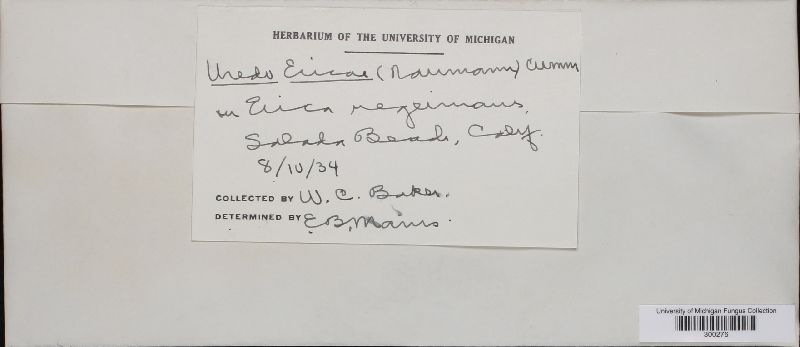 HERBARIUM OF THE UNIVERSITY OF MICHIGAN
Uredo Ericae (Naumann) Cumm
on Erica regerminans,
Salada Beach, Calif.
8/10/34
COLLECTED BY W. C. Baker.
DETERMINED BY E B. Mains.
University of Michigan Fungus Collection
300276